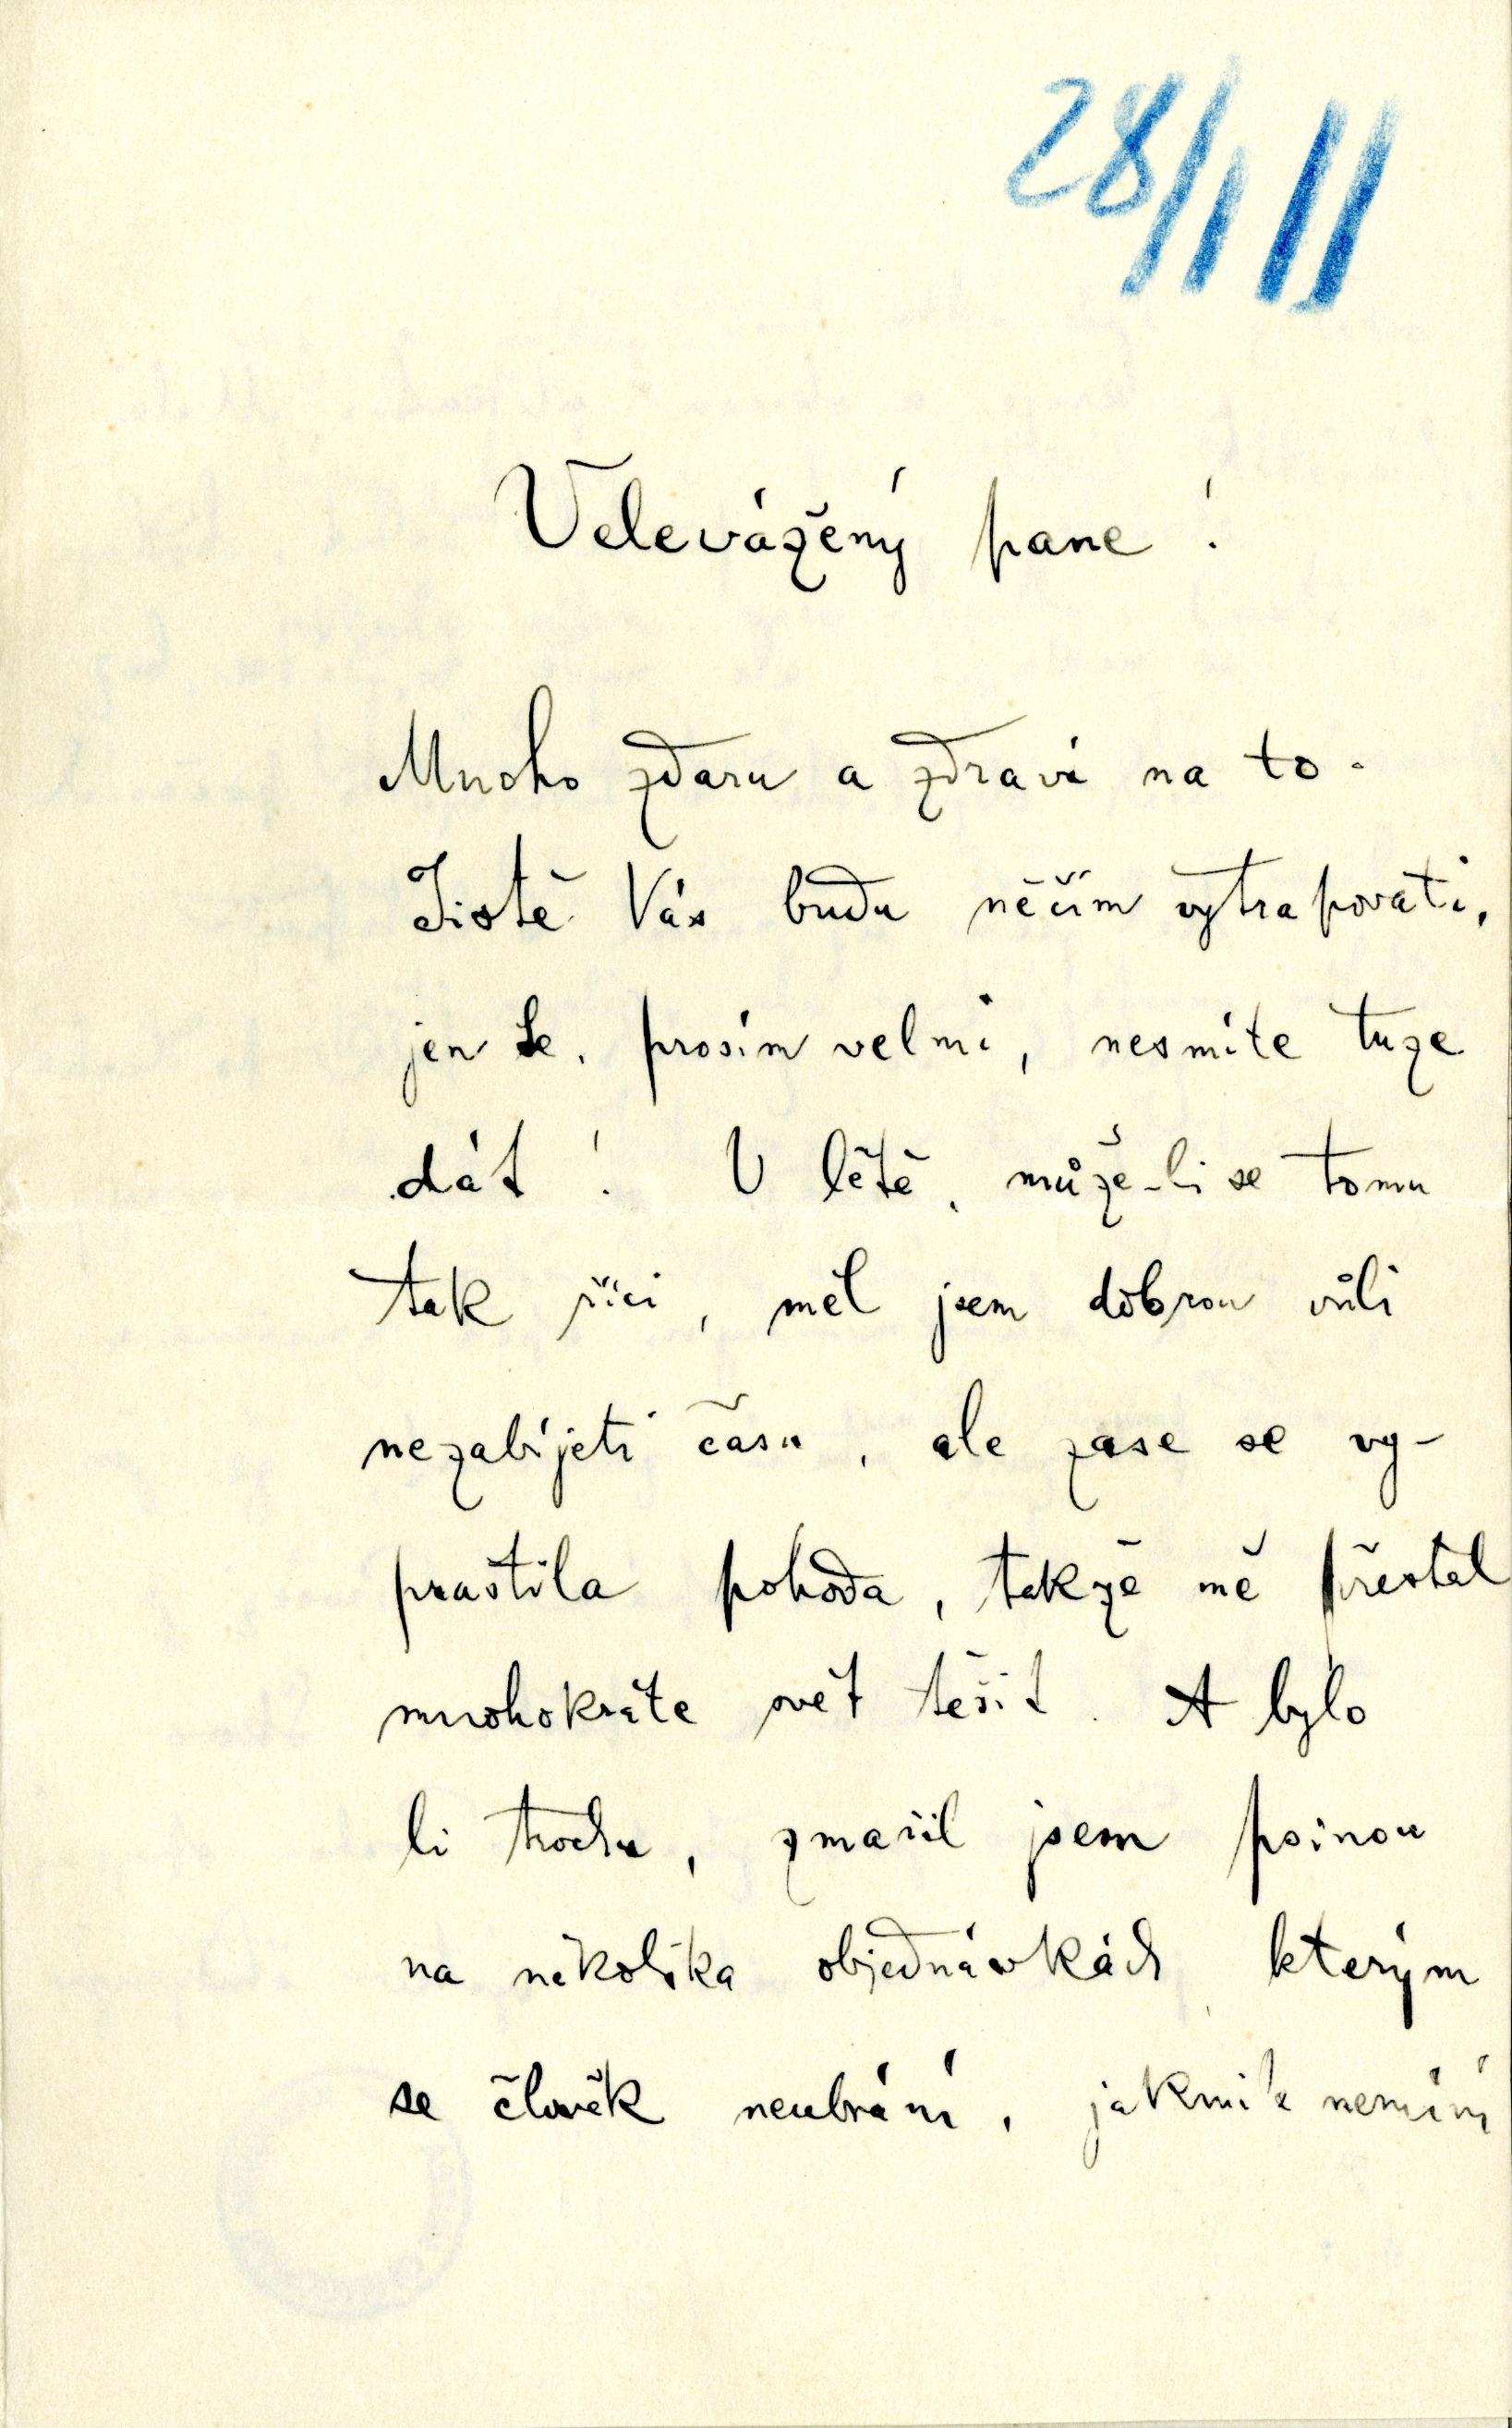 28/1 11
Velevážený pane!
Mnoho zdaru a zdraví na to.
Jistě Vás budu něčím vytrapovati,
jen se, prosím velmi, nesmíte tuze
dát! V létě, může-li se tomu
tak říci, měl jsem dobrou vůli
nezabíjeti času, ale zase se vy-
praštila pohoda, takže mě přestal
mnohokráte svět těšit. A bylo
li trochu, zmařil jsem psinou
na několika objednávkách, kterým
se člověk neubrání, jakmile